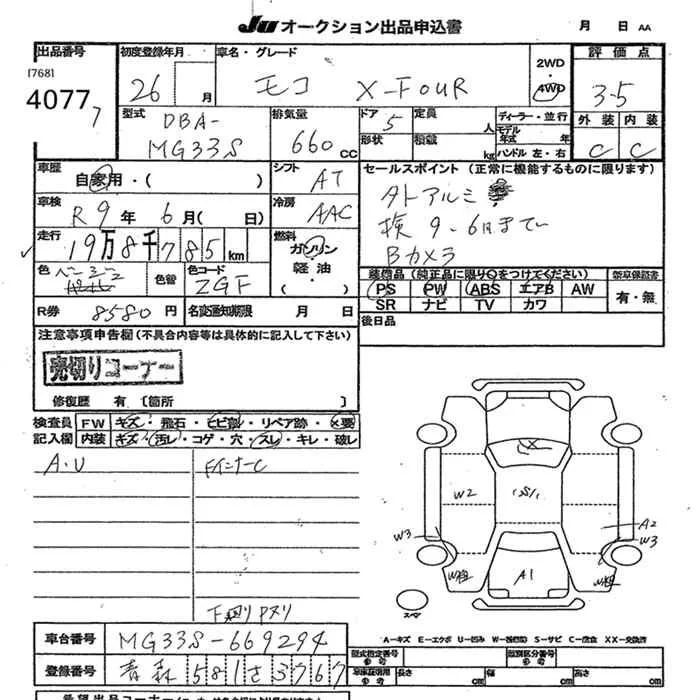 JU オークション出品申込書 月 日 AA
出品番号 初度登録年月 車名・グレード 2WD・4WD 評価点
[768]
40777
26 月 モコ X-FOUR 3.5
型式 DBA-MG33S 排気量 660 cc ドア 5 形状 定員 人 積載 kg
ディーラー・並行 モデル年式 年 ハンドル 左・右
外装 C 内装 C
車歴 自家用・( ) シフト AT
セールスポイント (正常に機能するものに限ります)
車検 R9年 6月( 日) 冷房 AAC
外アルミ
検 9.6月まで
Bカメラ
走行 19万8千785km 燃料 ガソリン・軽油・
色 色替 色コード ZGF
装備品 (純正品に限り○をつけてください) 新車保証書
PS PW ABS エアB AW 有・無
SR ナビ TV カワ
R券 8580円 名変通知期限 月 日
後日品
注意事項申告欄 (不具合内容等は具体的に記入して下さい)
売切りコーナー
修復歴 有 〔箇所 〕
検査員記入欄 FW キズ・飛石・ヒビ割・リペア跡・×要
内装 キズ・汚レ・コゲ・穴・スレ・キレ・破レ
A・U FインナーC
W2 A2
W3 W3
A1
スペア
下廻りPヌリ
A-キズ E-エクボ U-凹み W-補修跡 S-サビ C-腐食 XX-交換済
車台番号 MG33S-669294
型式指定番号 参考 類別区分番号 参考
登録番号 青森 581 さ 3767
車庫証明用 参考 長さ cm 幅 cm 高さ cm